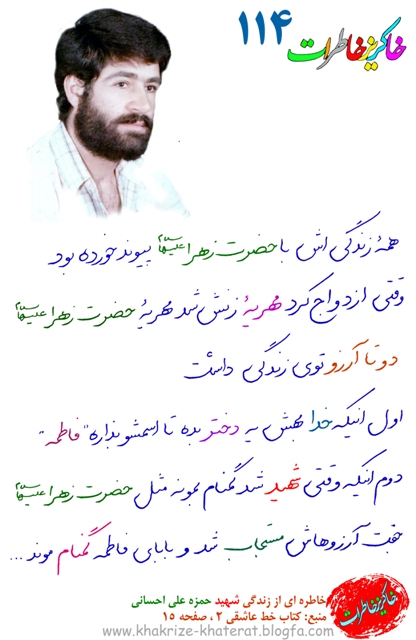 خاکریز خاطرات ۱۱۴
همهٔ زندگی اش با حضرت زهرا سلام‌الله‌علیها پیوند خورده بود
وقتی ازدواج کرد مهریهٔ زنش شد مهریهٔ حضرت زهرا سلام‌الله‌علیها
دو تا آرزو توی زندگی داشت
اول اینکه خدا بهش یه دختر بده تا اسمشو بذاره "فاطمه"
دوم اینکه وقتی شهید شد گمنام بمونه مثل حضرت زهرا سلام‌الله‌علیها
جفت آرزوهاش مستجاب شد و بابای فاطمه گمنام موند ...
خاطره ای از زندگی شهید حمزه علی احسانی
منبع: کتاب خط عاشقی ۲ ، صفحه ۱۵
خاکریز خاطرات
www.khakrize-khaterat.blogfa.com